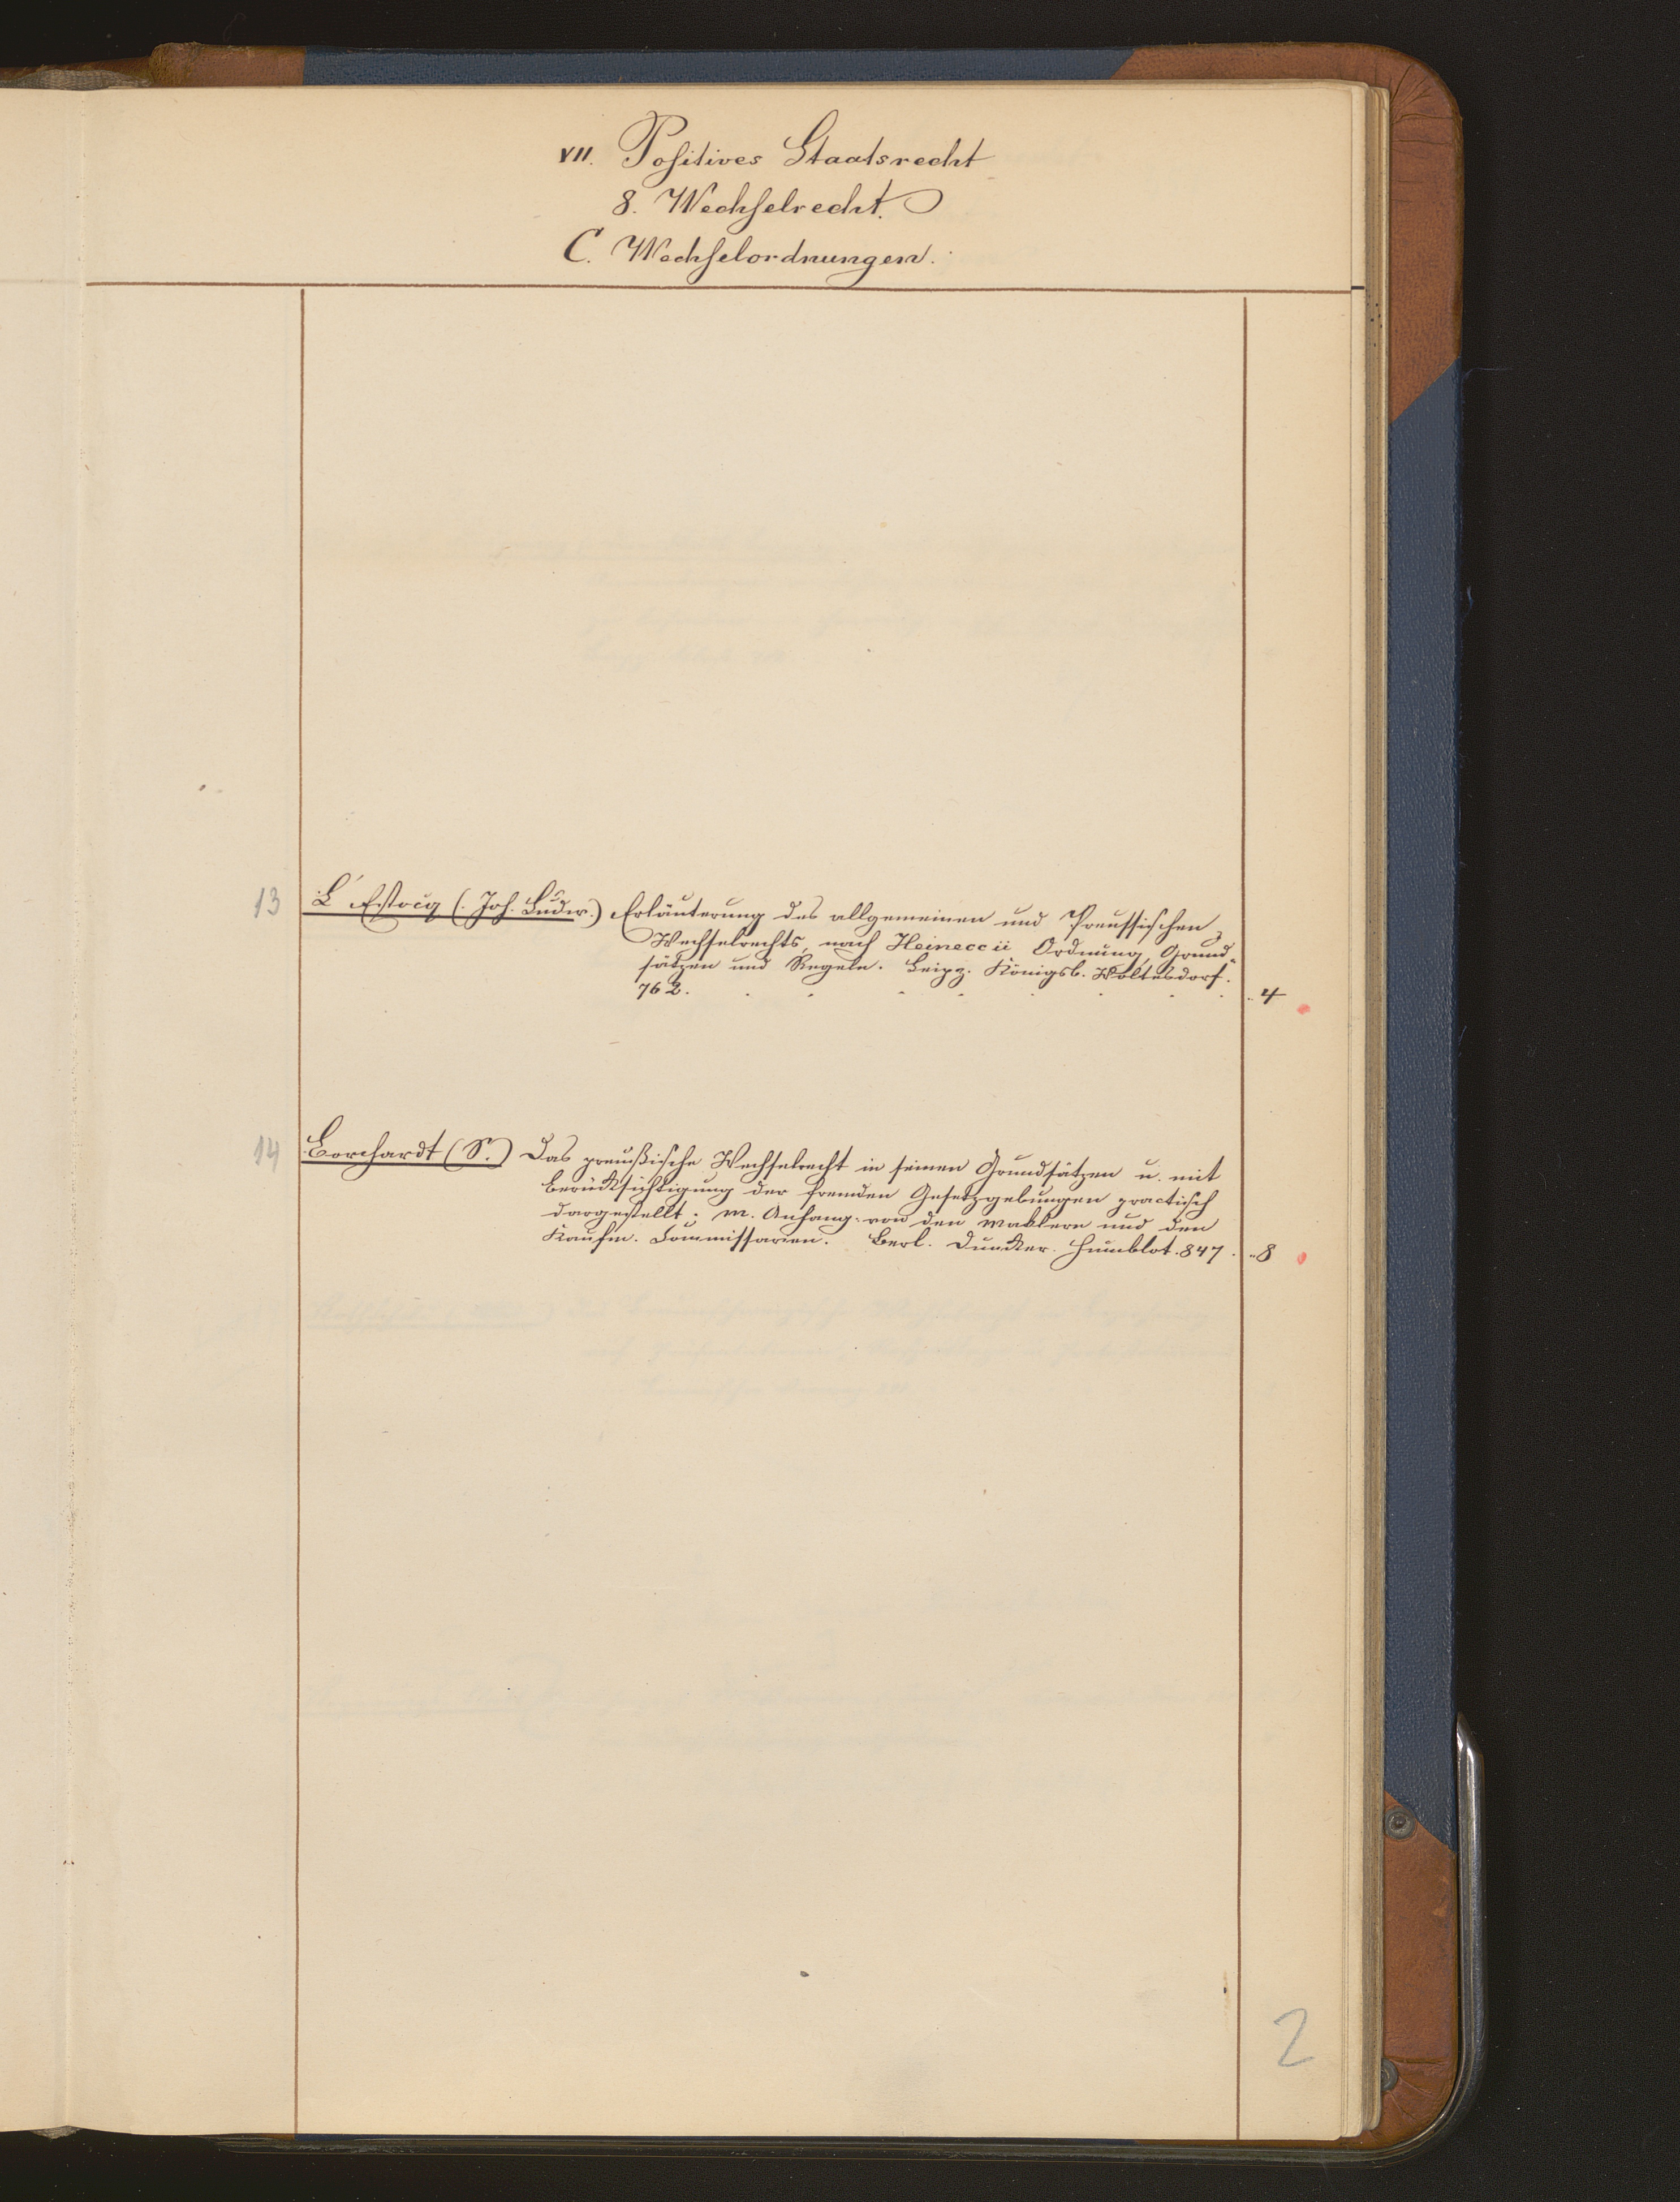 VII. Positives Staatsrecht
8. Wechselrecht.
C. Wechselordnungen.
13 L'Estocq (Joh. Ludw.) Erläuterung des allgemeinen und Preussischen
Wechselrechts, nach Heineccii Ordnung, Grund-
sätzen und Regeln. Leipz. Königsb. Woltersdorf.
762. . . . . . . . . 4
14 Borchardt (S.) Das preußische Wechselrecht in seinen Grundsätzen u. mit
Berücksichtigung der fremden Gesetzgebungen practisch
dargestellt; m. Anhang: von den Maklern und den
Kaufm. Commissarien. Berl. Duncker. Humblot. 847. 8
2